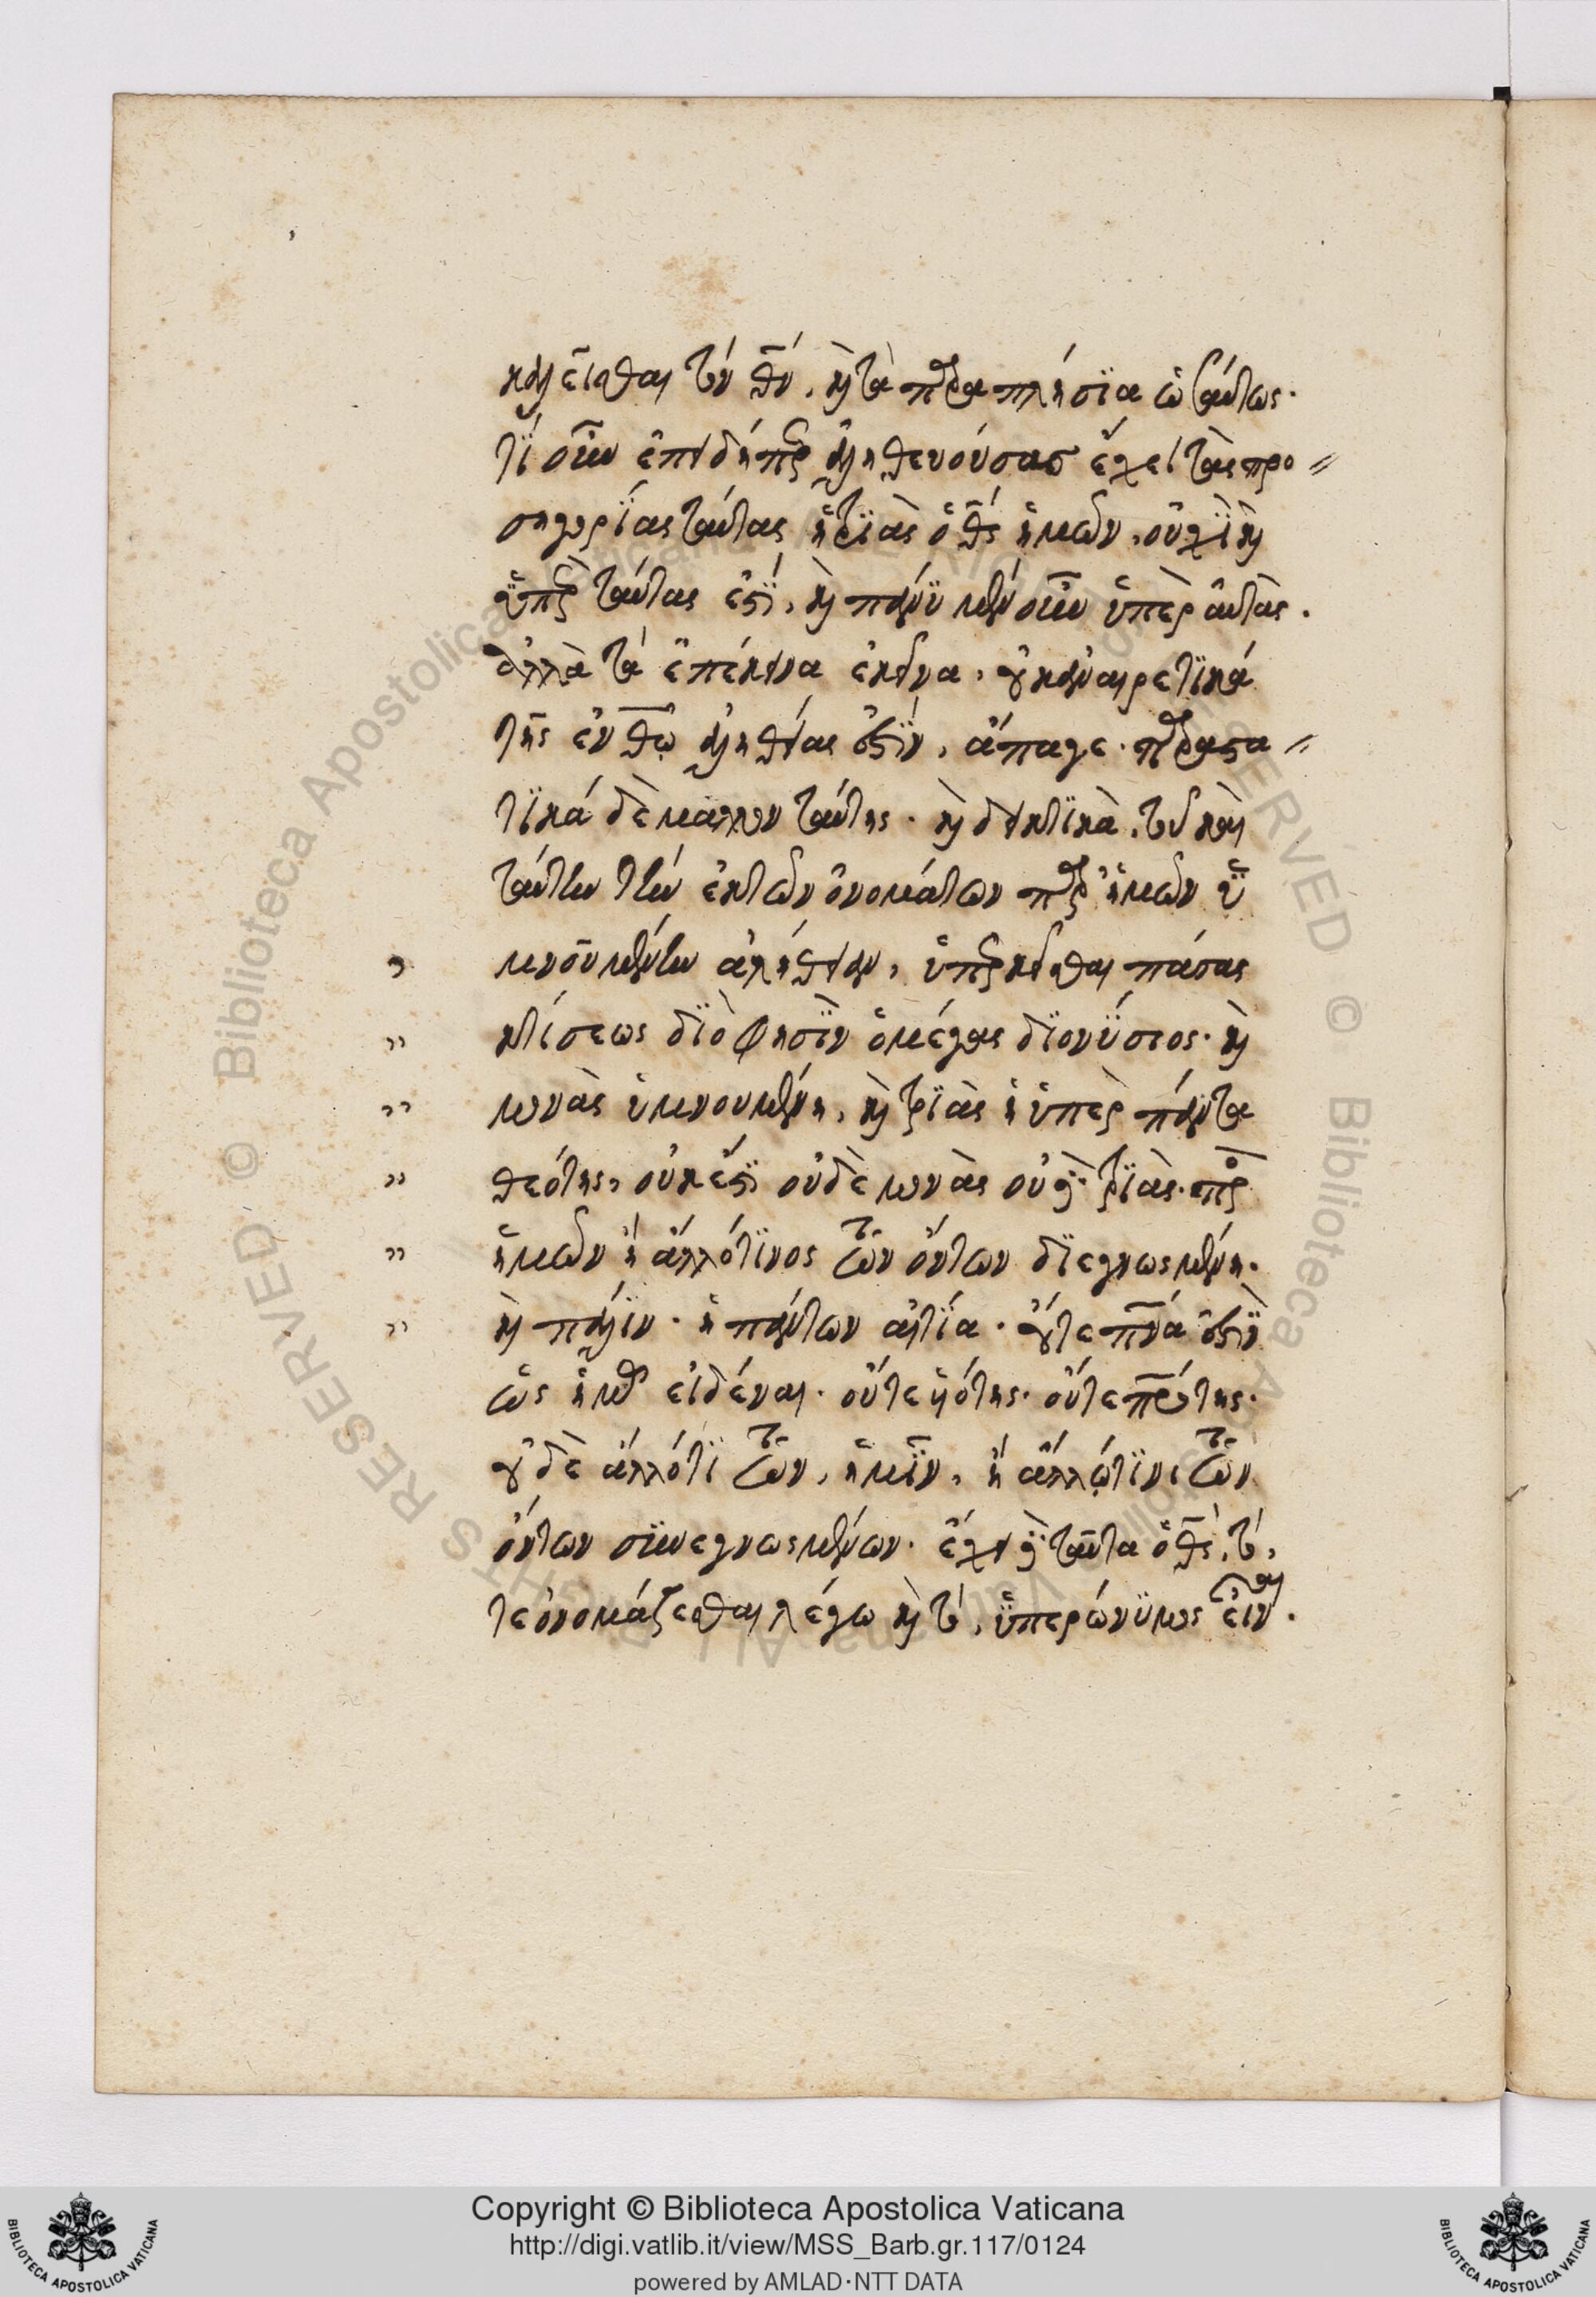 καλεῖσθαι τὸν θν, καὶ τὰ παραπλήσϊα ὡσαύτως.
τί οὖν ἐπειδήπερ ἀληθευούσας ἔχει τὰς προ=
σηγορίας ταύτας ἡ τριὰς ὁ θς ἡμῶν, οὐχὶ καὶ
ὑπὲρ ταύτας ἐστί, καὶ πάνυ μὲν οὖν ὑπὲρ αὐτὰς.
ἀλλὰ τὰ ἐπέκεινα ἐκεῖνα, οὐκ ἀναιρετικά
τῆς ἐν θῶ ἀληθείας ἐστὶν, ἄπαγε. παραστα=
τικά δὲ μᾶλλον ταύτης. καὶ δεικτικὰ. τοῦ καὶ
ταύτην τὴν ἐκ τῶν ὀνομάτων παρ' ἡμῶν ὑ
μνουμένην ἀλήθειαν, ὑπερκεῖσθαι πάσης
κτίσεως διὸ φησὶν ὁ μέγας διονύσιος. καὶ
μονὰς ὑμνουμένη, καὶ τριὰς ἡ ὑπὲρ πάντα
θεότης, οὐκ ἔστι οὐδὲ μονὰς οὐδὲ τριὰς. πρὸς
ἡμῶν ἢ ἄλλότινος τῶν ὄντων διεγνωσμένη.
καὶ πάλιν. ἡ πάντων αἰτία. οὔτε πνά ἐστὶν
ὡς ἡμᾶς εἰδέναι. οὔτε υἱότης. οὔτε πρότης.
οὐδὲ ἄλλότι τῶν, ἡμῖν, ἢ ἄλλῳτινι τῶν
ὄντων συνεγνωσμένων. ἔχει γὰρ ταῦτα ὁ θς, τό,
τε ὀνομάζεσθαι λέγω καὶ τὸ, ὑπερώνυμος εἶναι.
Copyright © Biblioteca Apostolica Vaticana
http://digi.vatlib.it/view/MSS_Barb.gr.117/0124
powered by AMLAD·NTT DATA